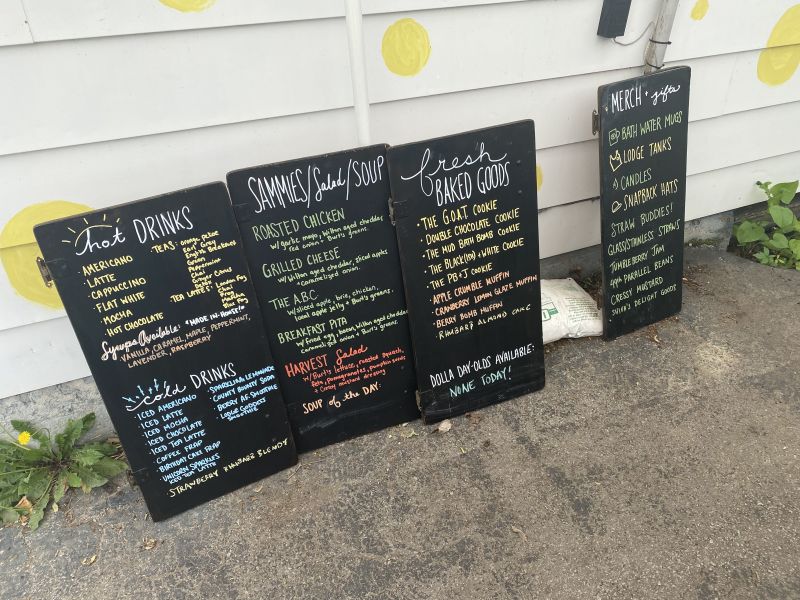 hot DRINKS
• AMERICANO
• LATTE
• CAPPUCCINO
• FLAT WHITE
• MOCHA
• HOT CHOCOLATE
TEAS: orange pekoe
Earl Grey
English Breakfast
Green
Peppermint
Chai
Ginger Citrus
Detox
TEA LATTES: London Fog
Syrups Available: *MADE IN-HOUSE!*
VANILLA, CARAMEL, MAPLE, PEPPERMINT,
LAVENDER, RASPBERRY
cold DRINKS
• ICED AMERICANO
• ICED LATTE
• ICED MOCHA
• ICED CHOCOLATE
• ICED TEA LATTE
• COFFEE FRAP
• BIRTHDAY CAKE FRAP
• UNICORN SPARKLES
ICED TEA LATTE
• STRAWBERRY RHUBARB BLENDY
• SPARKLING LEMONADE
• COUNTY BOUNTY SODA
• BERRY AF SMOOTHIE
• LODGE GODDESS
SMOOTHIE
SAMMIES/Salad/SOUP
ROASTED CHICKEN
w/ garlic mayo, Wilton aged cheddar,
red onion + Burt's greens.
GRILLED CHEESE
w/ Wilton aged cheddar, sliced apples
+ caramelized onion.
THE A.B.C.
w/ sliced apple, brie, chicken,
local apple jelly + Burt's greens.
BREAKFAST PITA
w/ fried egg, bacon, Wilton aged cheddar,
caramelized onion + Burt's greens.
HARVEST Salad
w/ Burt's lettuce, roasted squash,
feta, pomegranates, pumpkin seeds
+ Cressy mustard dressing
SOUP of the DAY:
fresh
BAKED GOODS
• THE G.O.A.T. COOKIE
• DOUBLE CHOCOLATE COOKIE
• THE MUD BATH BOMB COOKIE
• THE BLACK(IRD) + WHITE COOKIE
• THE PB + J COOKIE
• APPLE CRUMBLE MUFFIN
• CRANBERRY LEMON GLAZE MUFFIN
• BERRY BOMB MUFFIN
• RHUBARB ALMOND CAKE
DOLLA DAY-OLDS AVAILABLE:
NONE TODAY!
MERCH + gifts
BATH WATER MUGS
LODGE TANKS
CANDLES
SNAPBACK HATS
STRAW BUDDIES!
GLASS/STAINLESS STRAWS
TUMBLEBERRY JAM
44th PARALLEL BEANS
CRESSY MUSTARD
DELIGHT GOODS